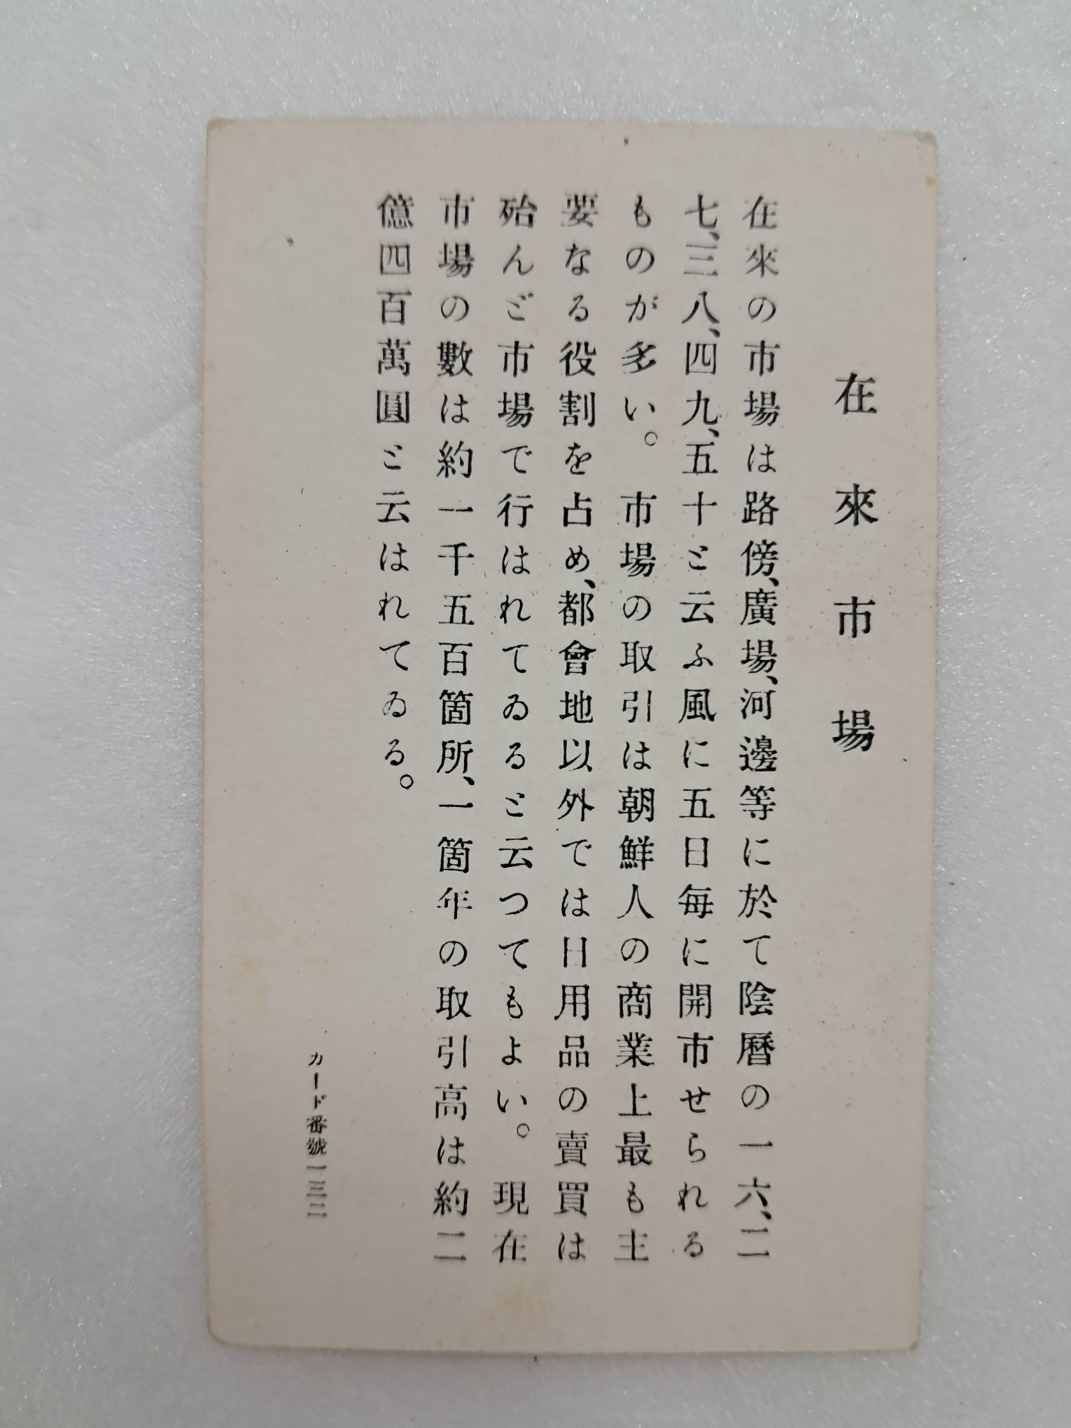 在來市場
在來の市場は路傍、廣場、河邊等に於て陰曆の一六、二
七、三八、四九、五十と云ふ風に五日每に開市せられる
ものが多い。市場の取引は朝鮮人の商業上最も主
要なる役割を占め、都會地以外では日用品の賣買は
殆んど市場で行はれてゐると云つてもよい。現在
市場の數は約一千五百箇所、一箇年の取引高は約二
億四百萬圓と云はれてゐる。
カード番號一三二